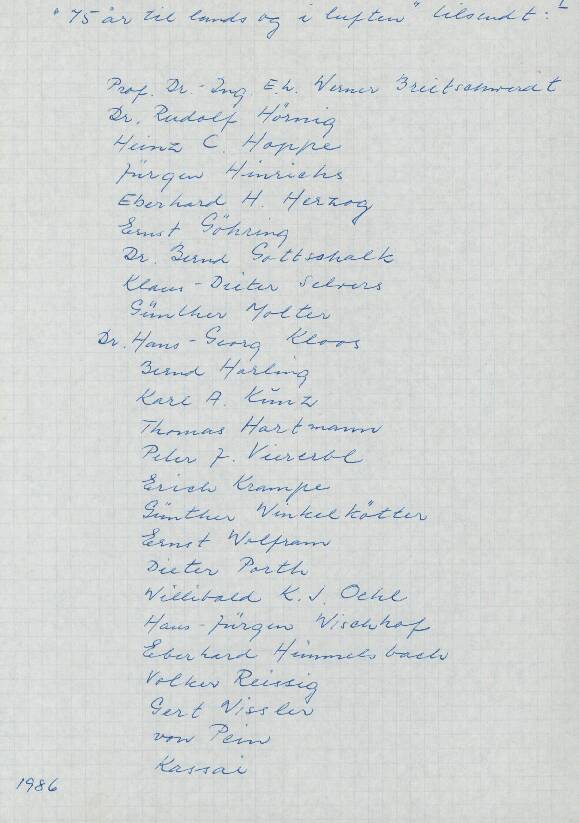 "75 år til lands og i luften" tilsendt:
Prof. Dr.-Ing E.h. Werner Breitschwerdt
Dr. Rudolf Hörnig
Heinz C. Hoppe
Jürgen Hinrichs
Eberhard H. Herzog
Ernst Göhring
Dr. Bernd Gottschalk
Klaus-Dieter Selvers
Günther Molter
Dr. Hans-Georg Kloos
Bernd Harling
Karl A. Künz
Thomas Hartmann
Peter J. Viererbl
Erich Krampe
Günther Winkelkötter
Ernst Wolfram
Dieter Porth
Willibald K. J. Oehl
Hans-Jürgen Wischhof
Eberhard Himmelsbach
Volker Reissig
Gert Nissler
von Pein
Kassai
1986